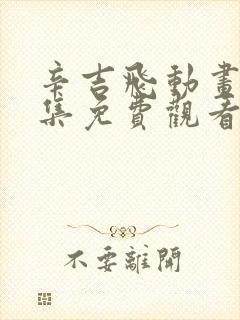 辛吉飛動畫
集免費觀看
不要離開